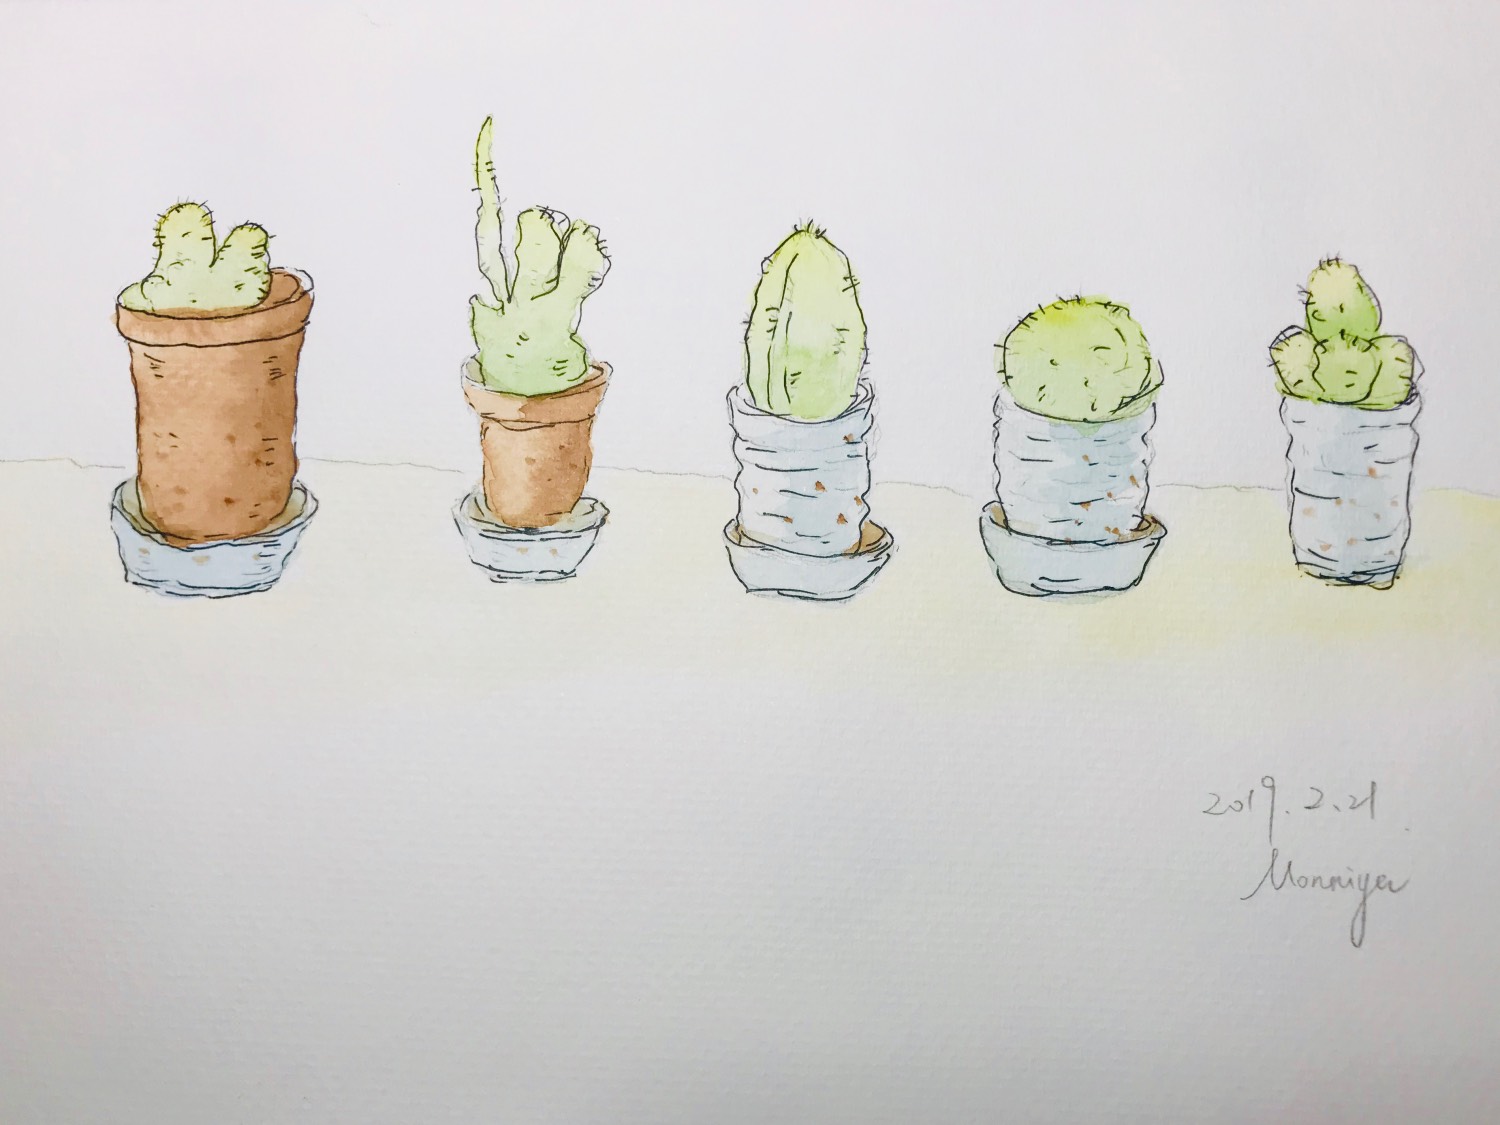 2019.2.21
Monniya